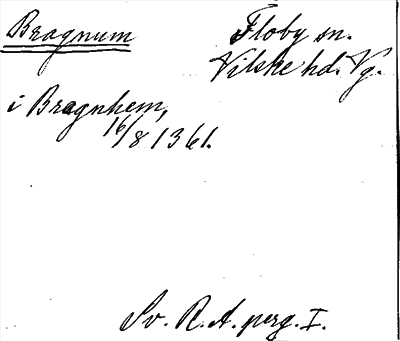 Bragnum
Floby sn.
Vilske hd. Vg.
i Bragnhem,
16/8 1361.
Sv. R.A. perg. I.